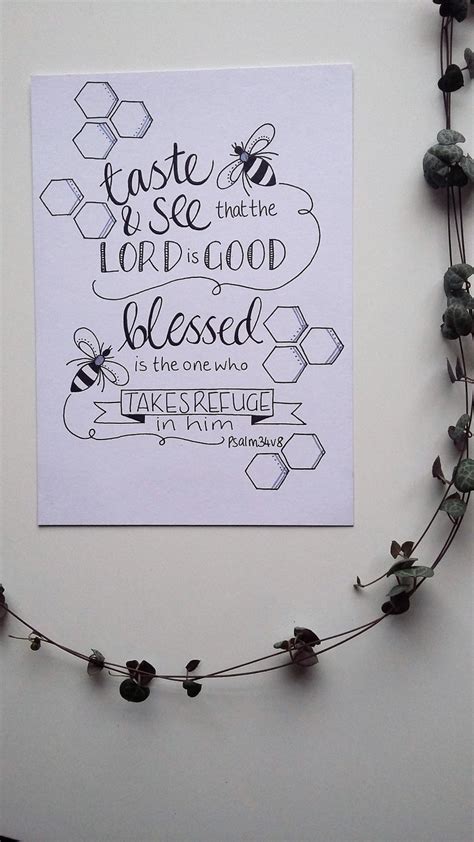 taste
& see that the
LORD is GOOD
blessed
is the one who
TAKES REFUGE
in him
Psalm34v8